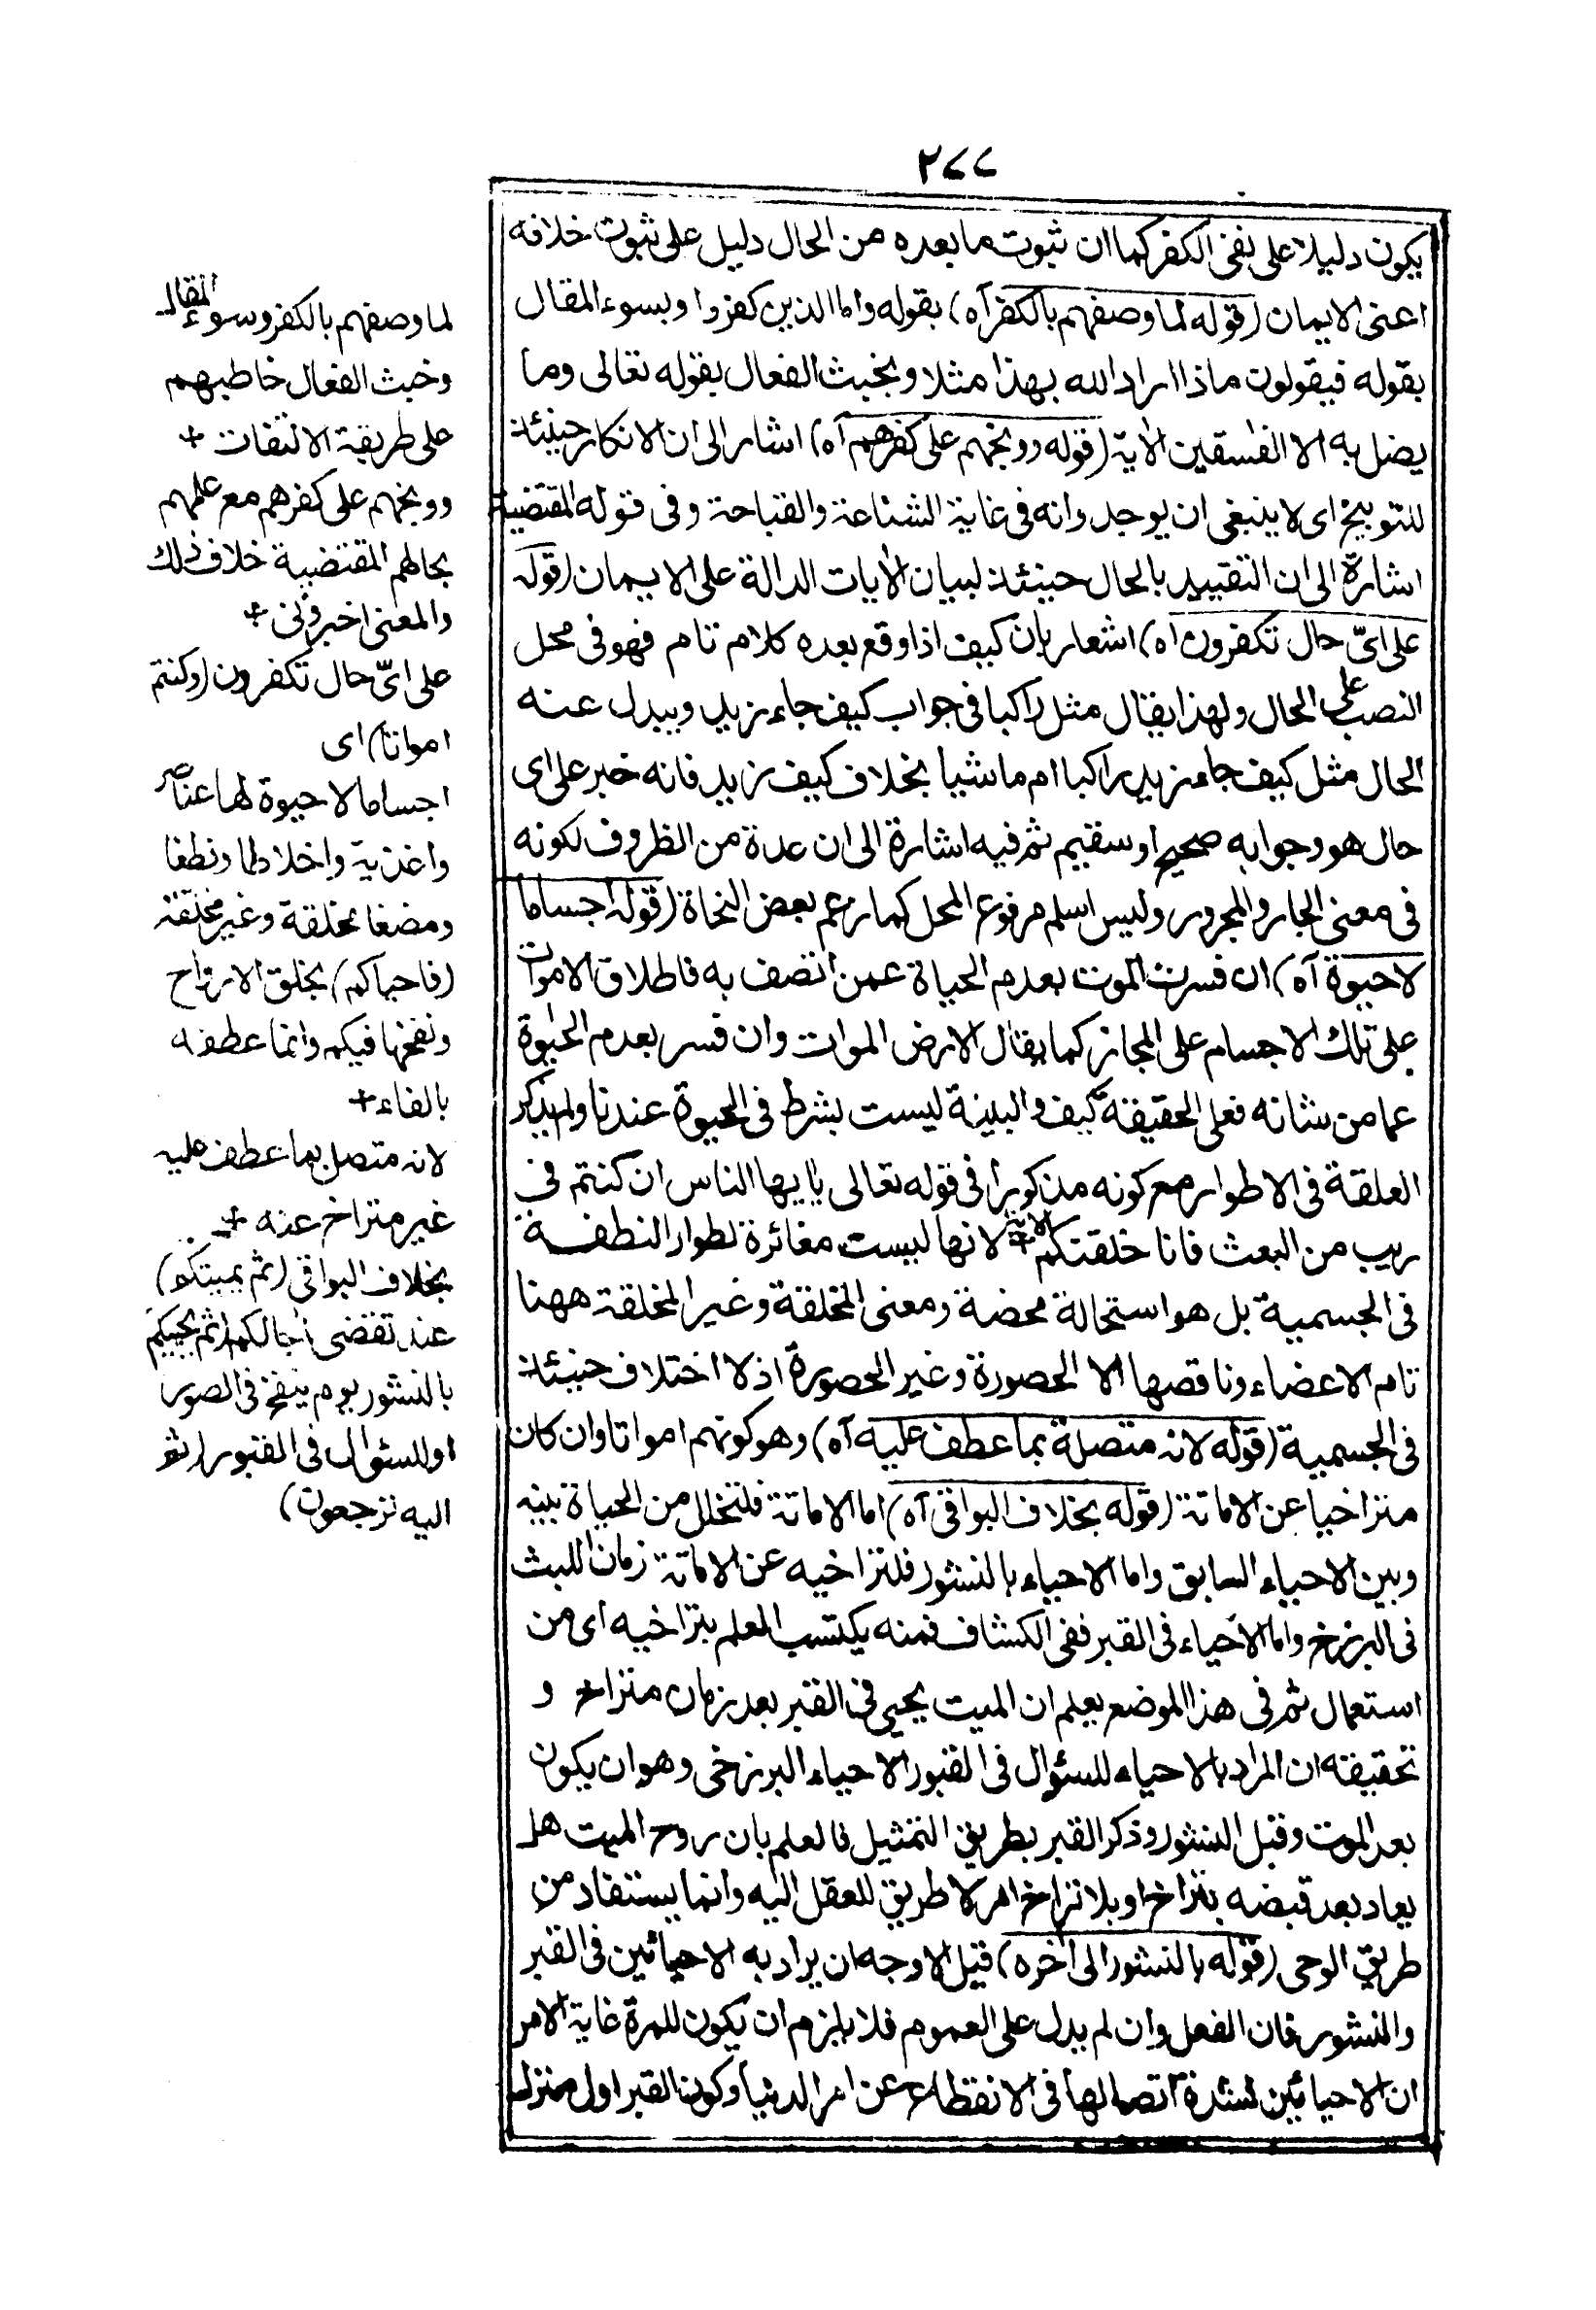 ٢٧٧
يكون دليلا على نفى الكفر كما ان ثبوت ما بعده من الحال دليل على ثبوت خلافه
اعنى الايمان (قوله لما وصفهم بالكفر آه) بقوله واما الذين كفروا وبسوء المقال
بقوله فيقولون ماذا اراد الله بهذا مثلا وبخبث الفعال بقوله تعالى وما
يضل به الا الفسقين الآية (قوله ووبخهم على كفرهم آه) اشار الى ان الانكار حينئذ
للتوبيخ اى لا ينبغى ان يوجد وانه فى غاية الشناعة والقباحة وفى قوله المقتضية
اشارة الى ان التقييد بالحال حينئذ لبيان الآيات الدالة على الايمان (قوله
على اىّ حال تكفرون آه) اشعار بان كيف اذا وقع بعده كلام تام فهو فى محل
النصب على الحال ولهذا يقال مثل راكبا فى جواب كيف جاء زيد ويبدل عنه
الحال مثل كيف جاء زيد راكبا ام ماشيا بخلاف كيف زيد فانه خبر على اى
حال هو وجوابه صحيح او سقيم ثم فيه اشارة الى ان عدة من الظروف لكونه
فى معنى الجار والمجرور وليس اسلم مرفوع المحل كما زعم بعض النحاة (قوله اجساما
لا حيوة آه) ان فسرت الموت بعدم الحياة عمن اتصف به فاطلاق الاموات
على تلك الاجسام على المجاز كما يقال الارض الموات وان فسر بعدم الحيوة
عما من شانه فعلى الحقيقة كيف والبنية ليست بشرط فى الحيوة عندنا ولم يذكر
العلقة فى الاطوار مع كونه مذكورا فى قوله تعالى يايها الناس ان كنتم فى
ريب من البعث فانا خلقنكم الآية لانها ليست مغائرة لطوار النطفة
فى الجسمية بل هو استحالة محضة ومعنى المخلقة وغير المخلقة ههنا
تام الاعضاء وناقصها الا الحصورة وغير الحصورة اذ لا اختلاف حينئذ
فى الجسمية (قوله لانه متصلة بما عطف عليه آه) وهو كونهم امواتا وان كان
متراخيا عن الاماتة (قوله بخلاف البواقى آه) اما الاماتة فلتخلل من الحياة بينه
وبين الاحياء السابق واما الاحياء بالنشور فلتراخيه عن الاماتة زمان اللبث
فى البرزخ واما الاحياء فى القبر ففى الكشاف فمنه يكتسب العلم بتراخيه اى من
استعمال ثم فى هذا الموضع يعلم ان الميت يحيى فى القبر بعد زمان متراخ و
تحقيقه ان المراد بالاحياء للسئوال فى القبور الاحياء البرزخى وهو ان يكون
بعد الموت وقبل النشور وذكر القبر بطريق التمثيل فالعلم بان روح الميت هل
يعاد بعد قبضه بتراخ او بلا تراخ امر لا طريق للعقل اليه وانما يستفاد من
طريق الوحى (قوله بالنشور الى آخره) قيل الاوجه ان يراد به الاحيائين فى القبر
والنشور فان الفعل وان لم يدل على العموم فلا يلزم ان يكون للمرة غاية الامر
ان الاحيائين لشدة اتصالها فى الانقطاع عن امر الدنيا وكون القبر اول منزل
لما وصفهم بالكفر وسوء المقال
وخبث الفعال خاطبهم
على طريقة الالتفات +
ووبخهم على كفرهم مع علمهم
بحالهم المقتضية خلاف ذلك
والمعنى اخبرونى +
على اىّ حال تكفرون (وكنتم
امواتا) اى
اجساما لا حيوة لها عناصر
واغذية واخلاطا ونطفا
ومضغا مخلقة وغير مخلقة
(فاحياكم) بخلق الارواح
ونفخها فيكم وانما عطفه
بالفاء +
لانه متصل بما عطف عليه
غير متراخ عنه +
بخلاف البواقى (ثم يميتكم)
عند تقضى آجالكم (ثم يحييكم)
بالنشور يوم ينفخ فى الصور
او للسئوال فى القبور (ثم
اليه ترجعون)